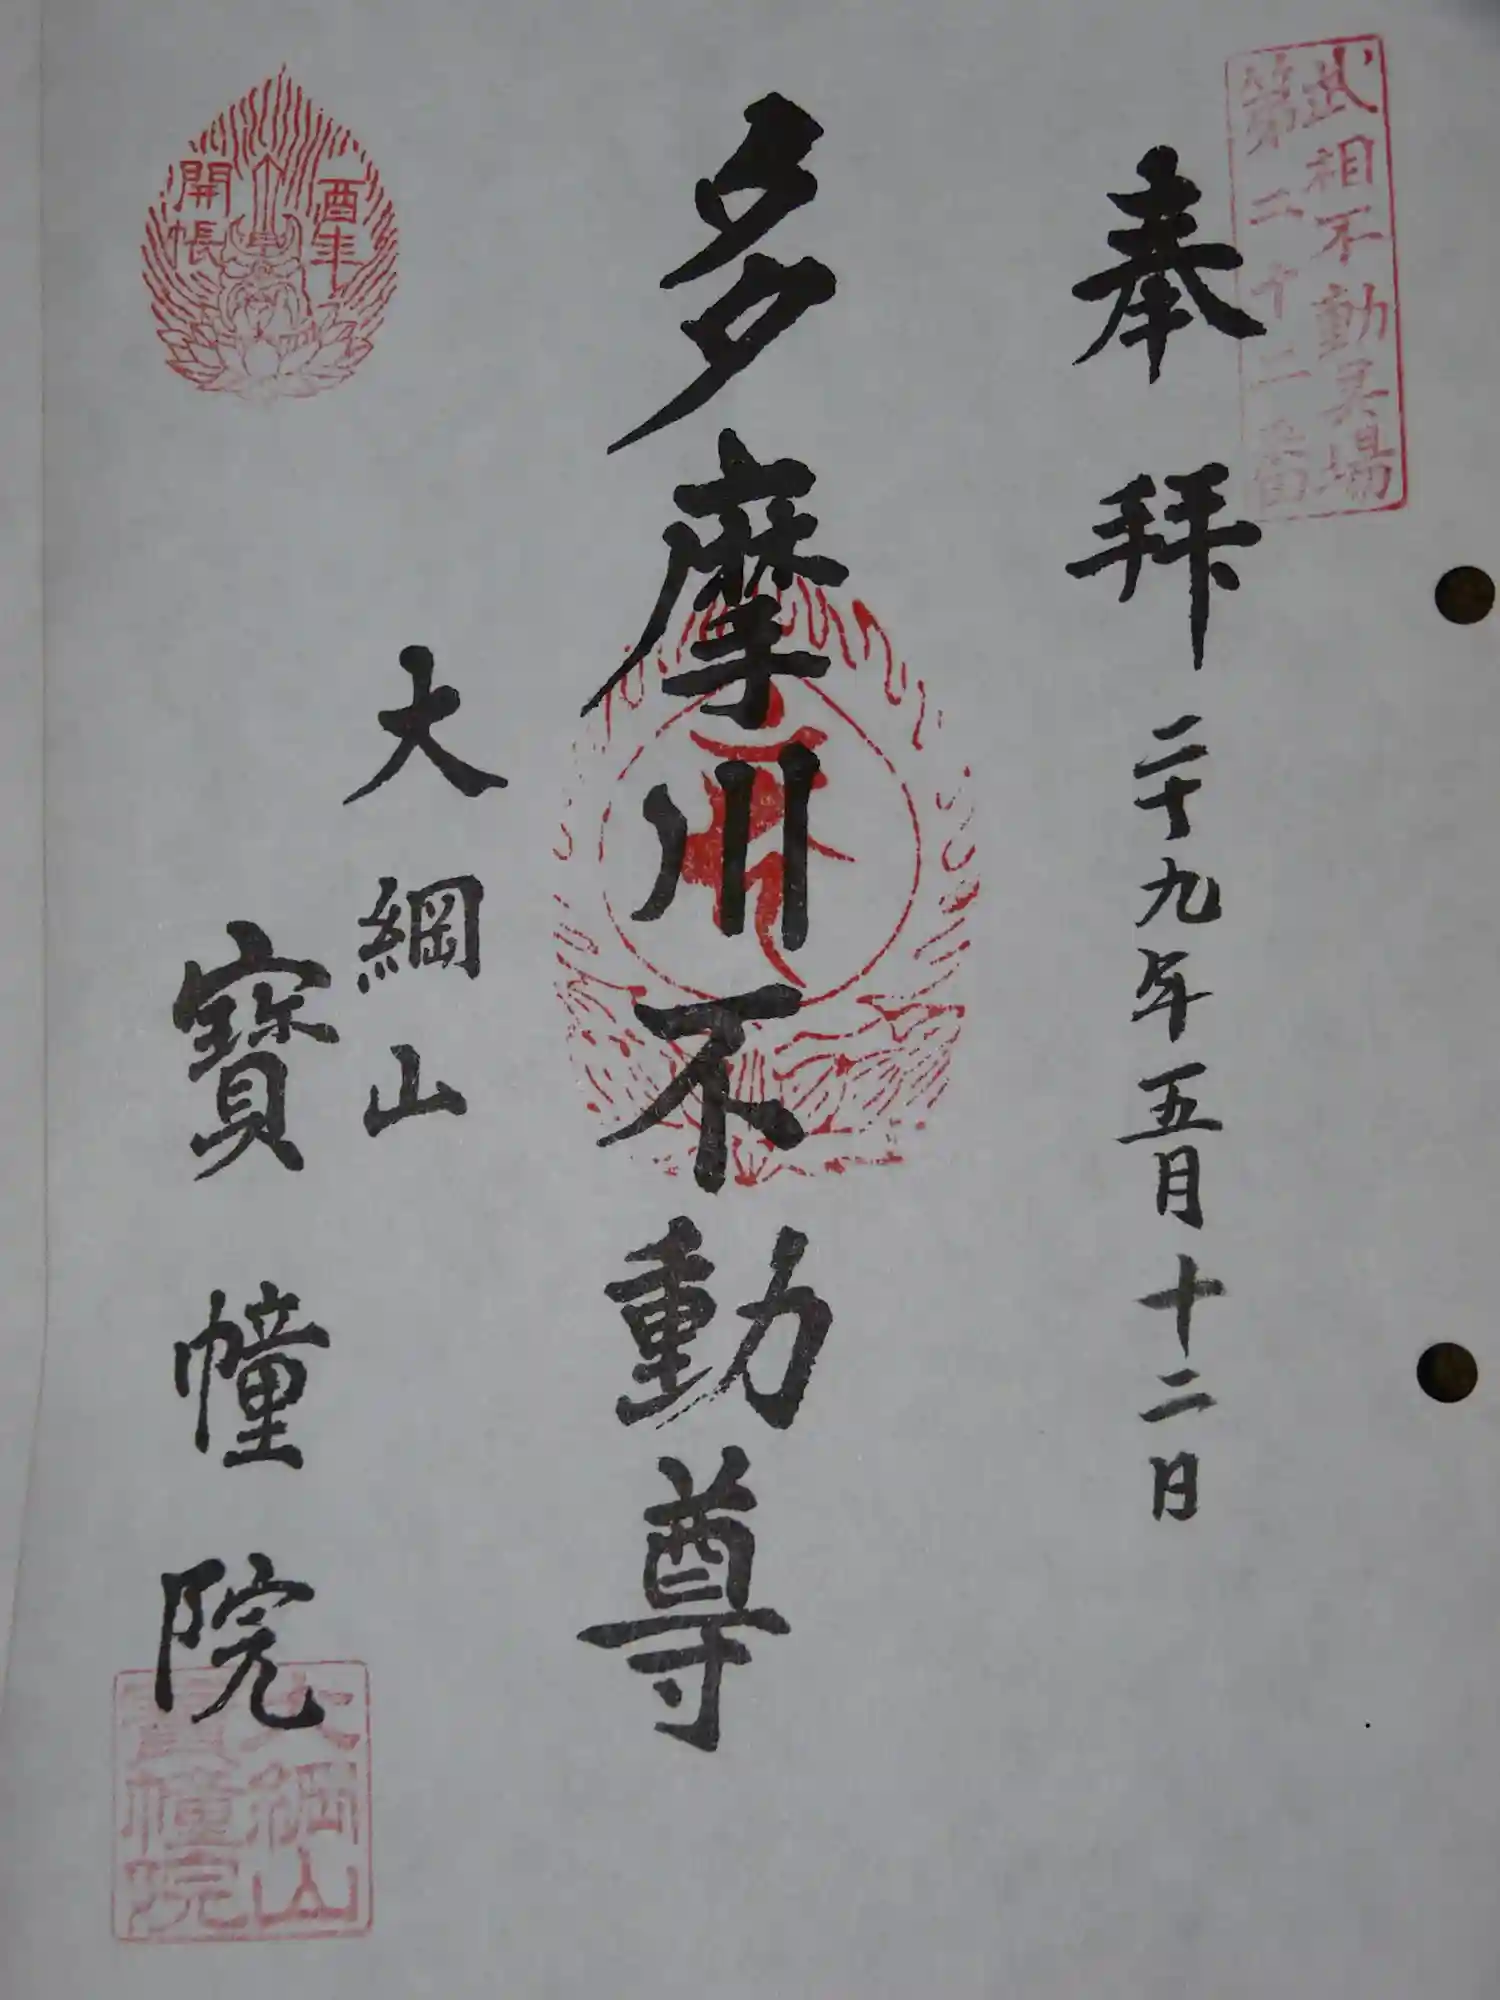 武相不動霊場
第二十二番
奉拝
二十九年五月十二日
多摩川不動尊
大綱山
寳幢院
酉年
開帳
大綱山
寳幢院